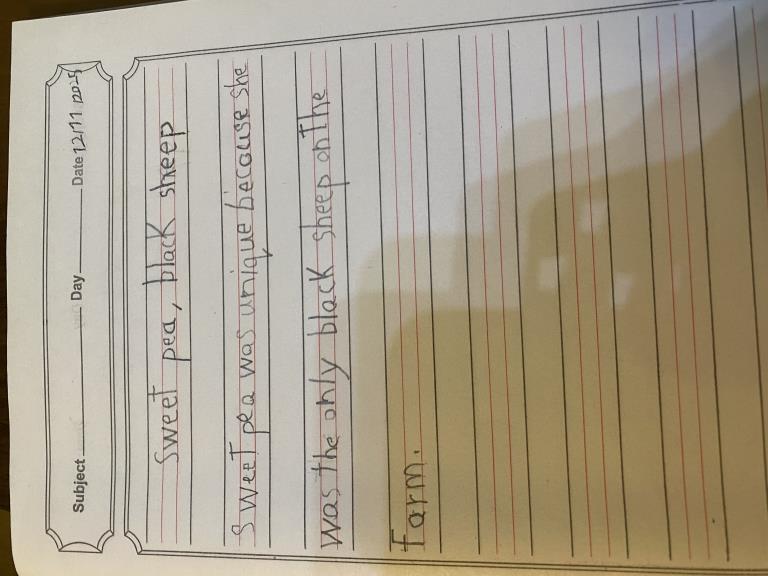 Subject Day Date 12/11/2025
Sweet pea, black sheep
Sweet pea was unique because she
was the only black sheep on the
farm.